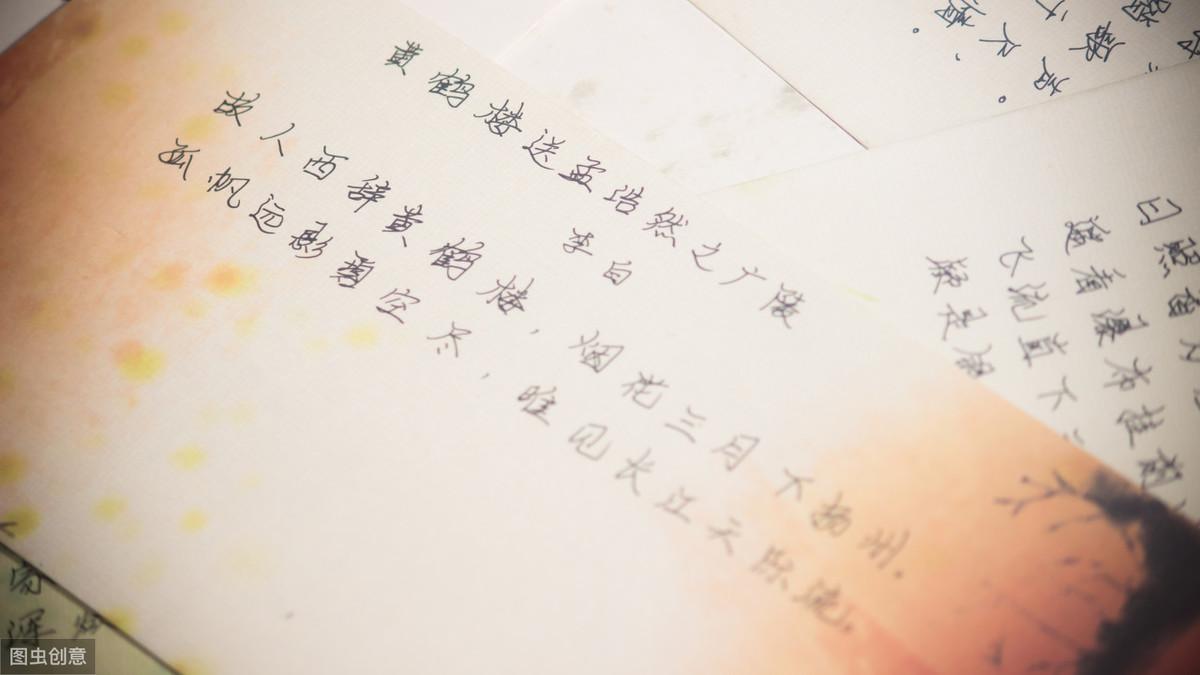 黄鹤楼送孟浩然之广陵
李白
故人西辞黄鹤楼，烟花三月下扬州.
孤帆远影碧空尽，唯见长江天际流.
日照香
遥看瀑布挂前
飞流直下
疑是银
图虫创意